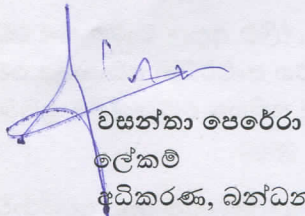 වසන්තා පෙරේරා
ලේකම්
අධිකරණ, බන්ධන